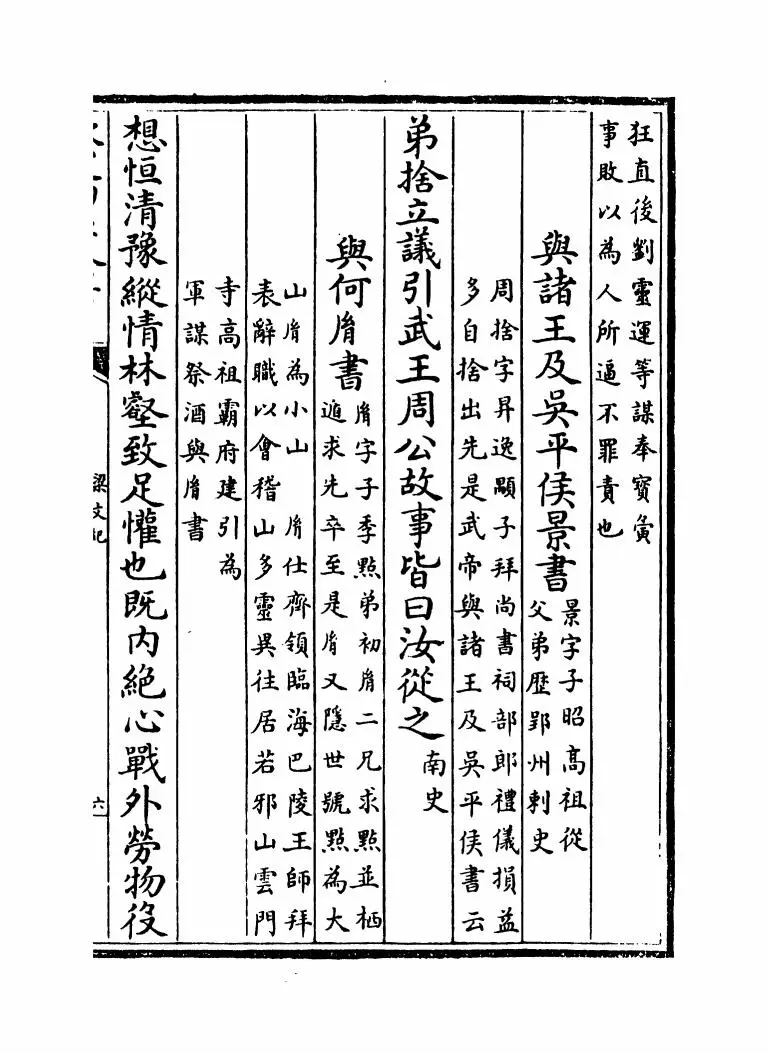 狂直後劉靈運等謀奉寳夤
事敗以為人所逼不罪責也
與諸王及吳平侯景書
景字子昭高祖從
父弟歴郢州刺史
周捨字昇逸顒子拜尚書祠部郎禮儀損益
多自捨出先是武帝與諸王及吳平侯書云
弟捨立議引武王周公故事皆曰汝從之
南史
與何𦙍書
𦙍字子季㸃弟初𦙍二兄求㸃並栖
遁求先卒至是𦙍又隱世號㸃為大
山𦙍為小山 𦙍仕齊領臨海巴陵王師拜
表辭職以會稽山多靈異往居若邪山雲門
寺高祖霸府建引為
軍謀祭酒與𦙍書
想恒清豫縱情林壑致足懽也既内絶心戰外勞物役
梁文紀
六